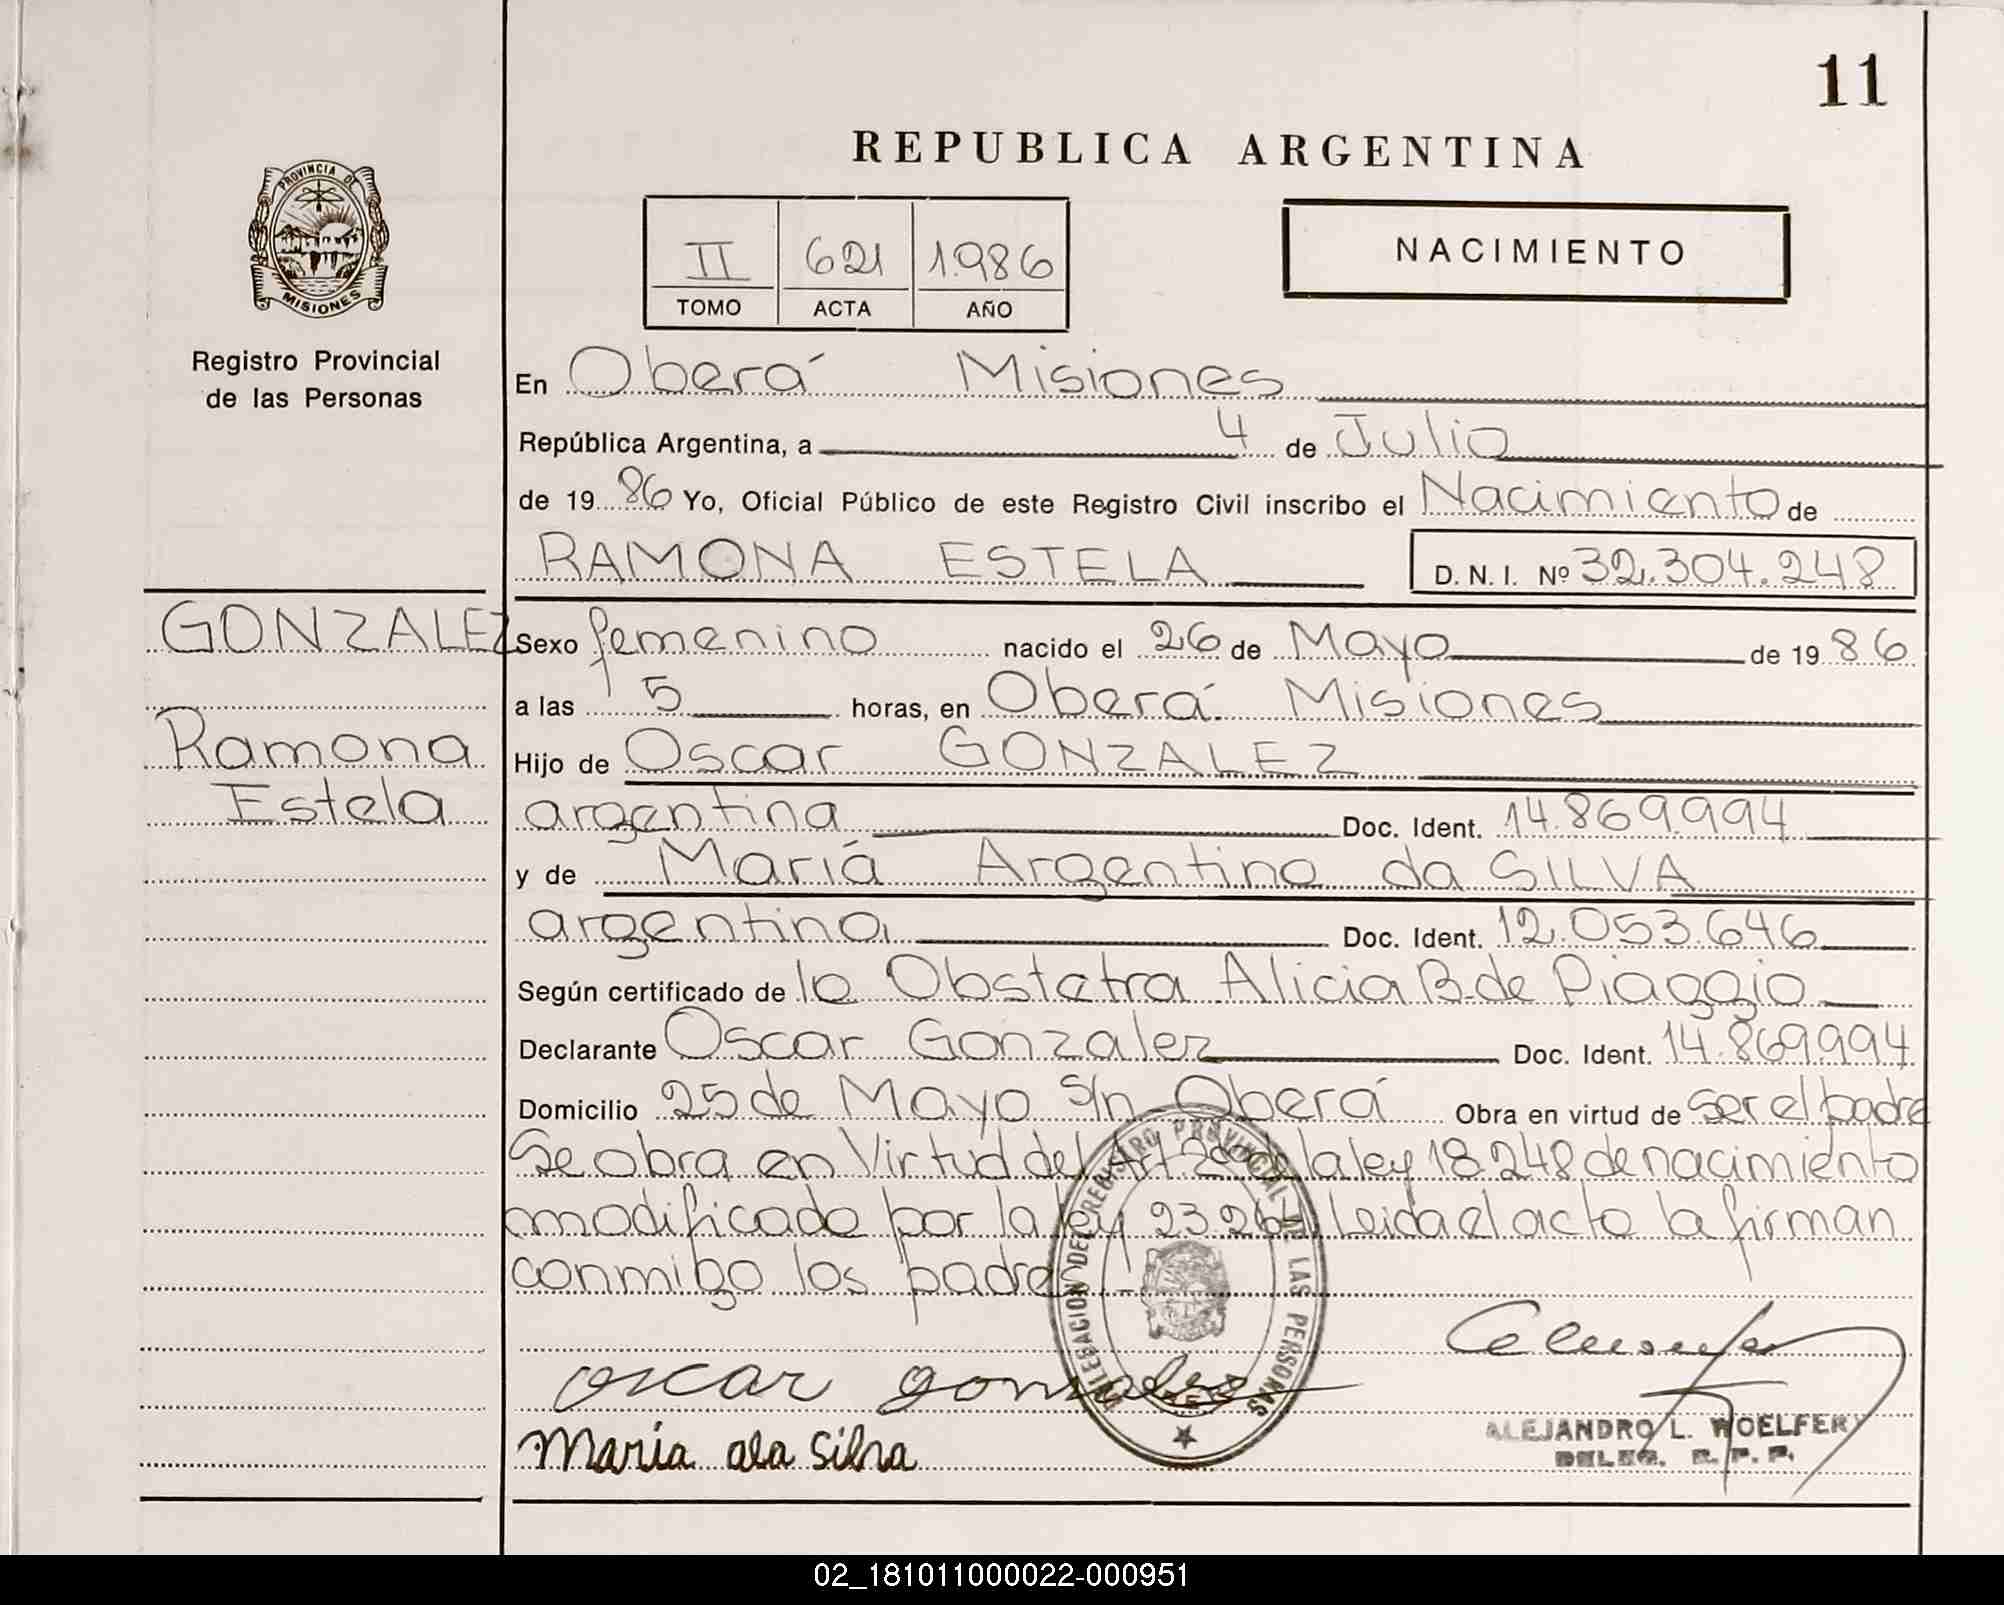 11
REPUBLICA ARGENTINA
PROVINCIA DE
MISIONES
Registro Provincial
de las Personas
II 621 1.986
TOMO ACTA AÑO
NACIMIENTO
En Oberá Misiones
República Argentina, a 4 de Julio
de 19 86 Yo, Oficial Público de este Registro Civil inscribo el Nacimiento de
RAMONA ESTELA D. N. I. Nº 32.304.248
GONZALEZ
Ramona
Estela
Sexo femenino nacido el 26 de Mayo de 19 86
a las 5 horas, en Oberá Misiones
Hijo de Oscar GONZALEZ
argentina Doc. Ident. 14.869.994
y de Mariá Argentina da SILVA
argentina Doc. Ident. 12.053.646
Según certificado de la Obstetra Alicia B. de Piaggio
Declarante Oscar Gonzalez Doc. Ident. 14.869.994
Domicilio 25 de Mayo S/n Oberá Obra en virtud de ser el padre
Se obra en Virtud del Art. 2º de la ley 18.248 de nacimiento
modificado por la ley 23.264 Leida el acta la firman
conmigo los padres
DELEGACION DEL REGISTRO PROVINCIAL DE LAS PERSONAS
oscar gonzalez
María da Silva
ALEJANDRO L. WOELFERT
DELEG. R. P. P.
02_181011000022-000951